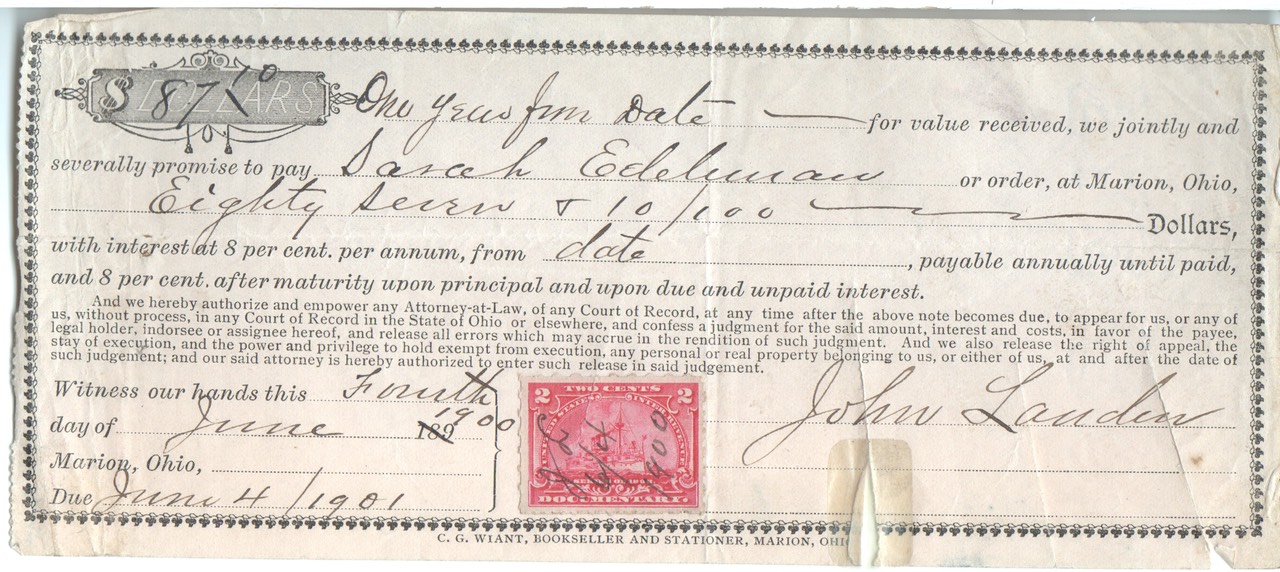 $ DOLLARS 87 10
One year from date for value received, we jointly and
severally promise to pay Sarah Edelman or order, at Marion, Ohio,
Eighty Seven & 10/100 Dollars,
with interest at 8 per cent. per annum, from date, payable annually until paid,
and 8 per cent. after maturity upon principal and upon due and unpaid interest.
And we hereby authorize and empower any Attorney-at-Law, of any Court of Record, at any time after the above note becomes due, to appear for us, or any of
us, without process, in any Court of Record in the State of Ohio or elsewhere, and confess a judgment for the said amount, interest and costs, in favor of the payee,
legal holder, indorsee or assignee hereof, and release all errors which may accrue in the rendition of such judgment. And we also release the right of appeal, the
stay of execution, and the power and privilege to hold exempt from execution, any personal or real property belonging to us, or either of us, at and after the date of
such judgement; and our said attorney is hereby authorized to enter such release in said judgement.
Witness our hands this Fourth
day of June 189 1900
Marion, Ohio,
Due June 4/1901
John Landen
2 TWO CENTS 2
UNITED STATES INTERNAL REVENUE
J L
6/4
1900
SERIES OF 1898
DOCUMENTARY.
C. G. WIANT, BOOKSELLER AND STATIONER, MARION, OHIO